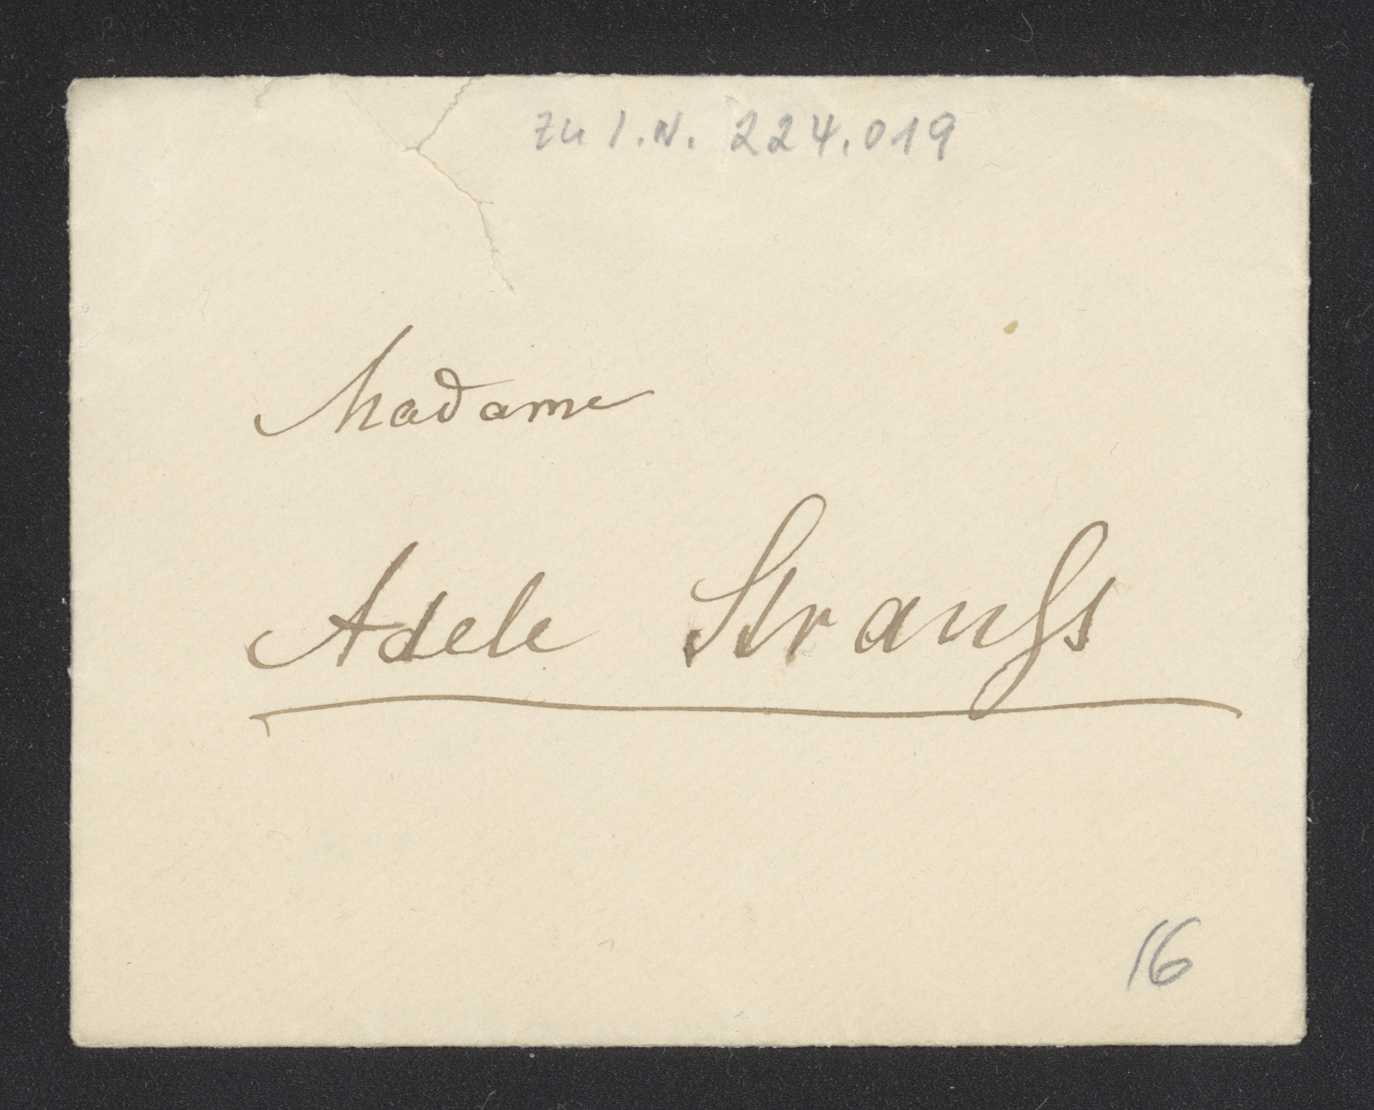 Zu I.N. 224.019
Madame
Adele Strauſs
16